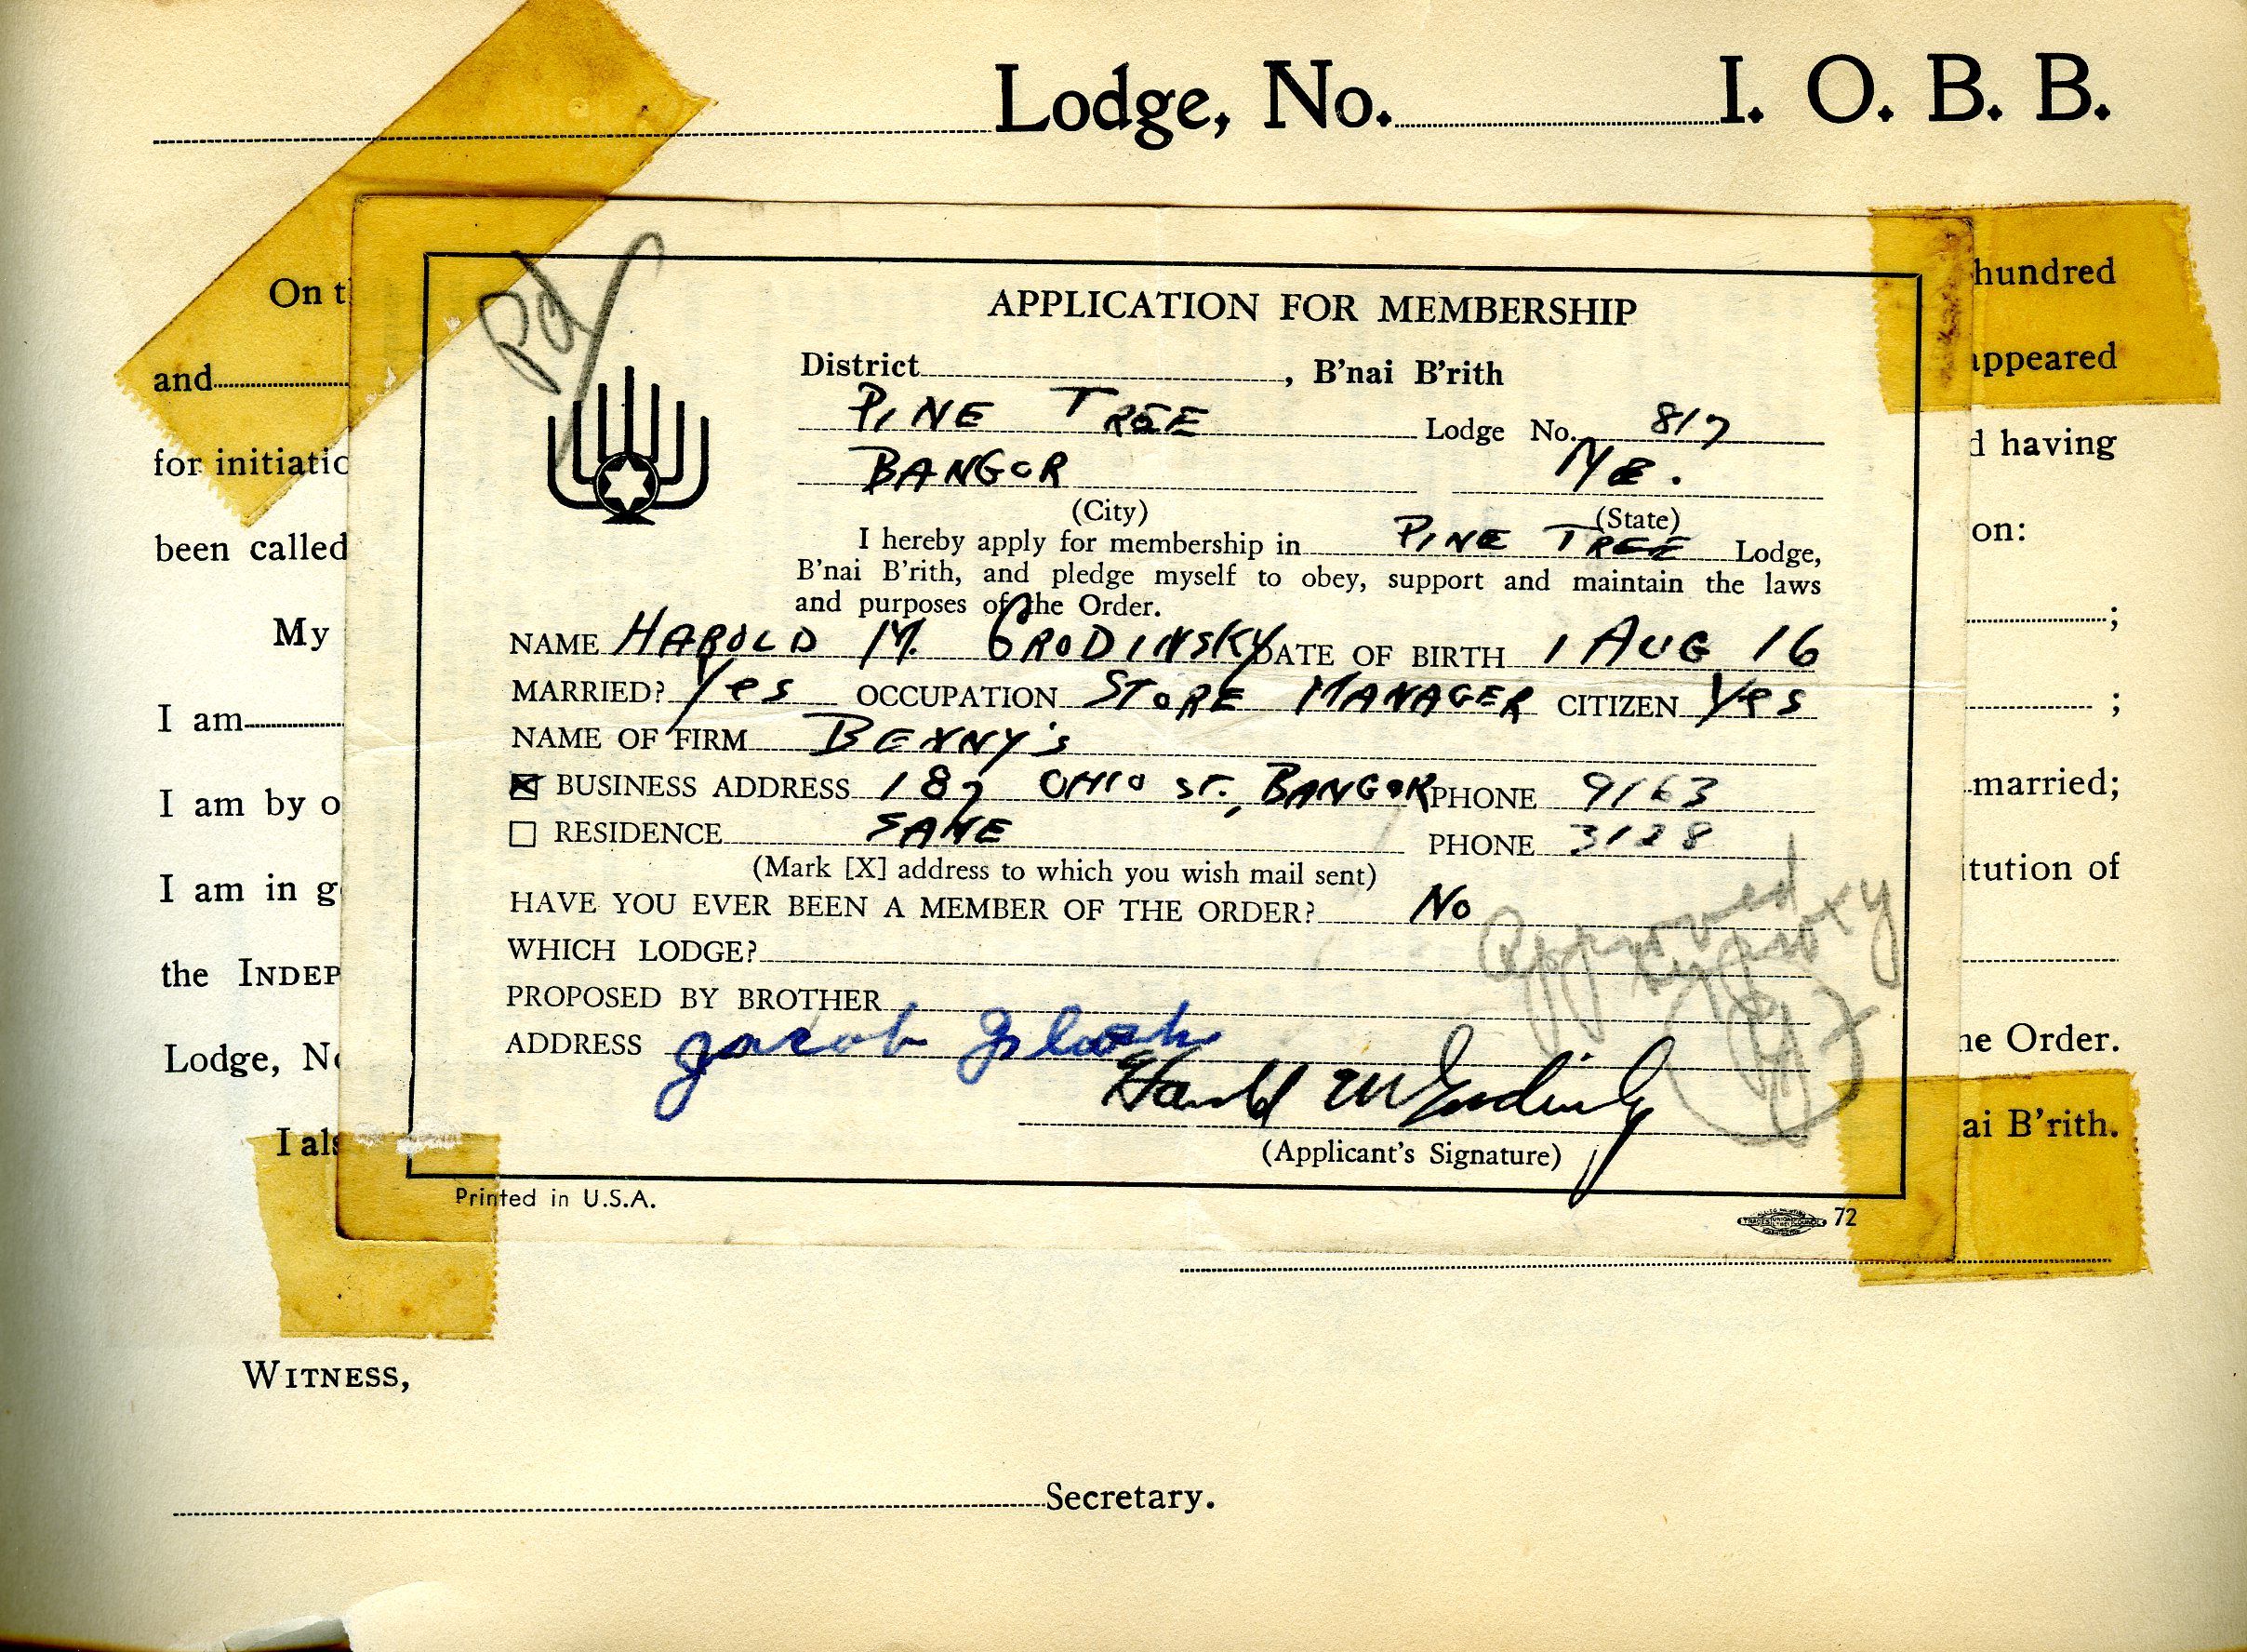 Lodge, No. I. O. B. B.
On t hundred
and appeared
for initiatio d having
been called on:
My ;
I am ;
I am by o married;
I am in g itution of
the INDEP
Lodge, No he Order.
I als ai B'rith.
Pd
APPLICATION FOR MEMBERSHIP
District , B'nai B'rith
PINE TREE Lodge No. 817
BANGOR ME.
(City) (State)
I hereby apply for membership in PINE TREE Lodge,
B'nai B'rith, and pledge myself to obey, support and maintain the laws
and purposes of the Order.
NAME HAROLD M. GRODINSKY DATE OF BIRTH 1 AUG 16
MARRIED? Yes OCCUPATION STORE MANAGER CITIZEN Yes
NAME OF FIRM BENNY'S
BUSINESS ADDRESS 187 OHIO ST., BANGOR PHONE 9163
RESIDENCE SAME PHONE 3128
(Mark [X] address to which you wish mail sent)
HAVE YOU EVER BEEN A MEMBER OF THE ORDER? No
WHICH LODGE?
Approved
by proxy
PROPOSED BY BROTHER
ADDRESS Jacob
Harold M Grodinsky
(Applicant's Signature)
Printed in U.S.A.
72
WITNESS,
Secretary.